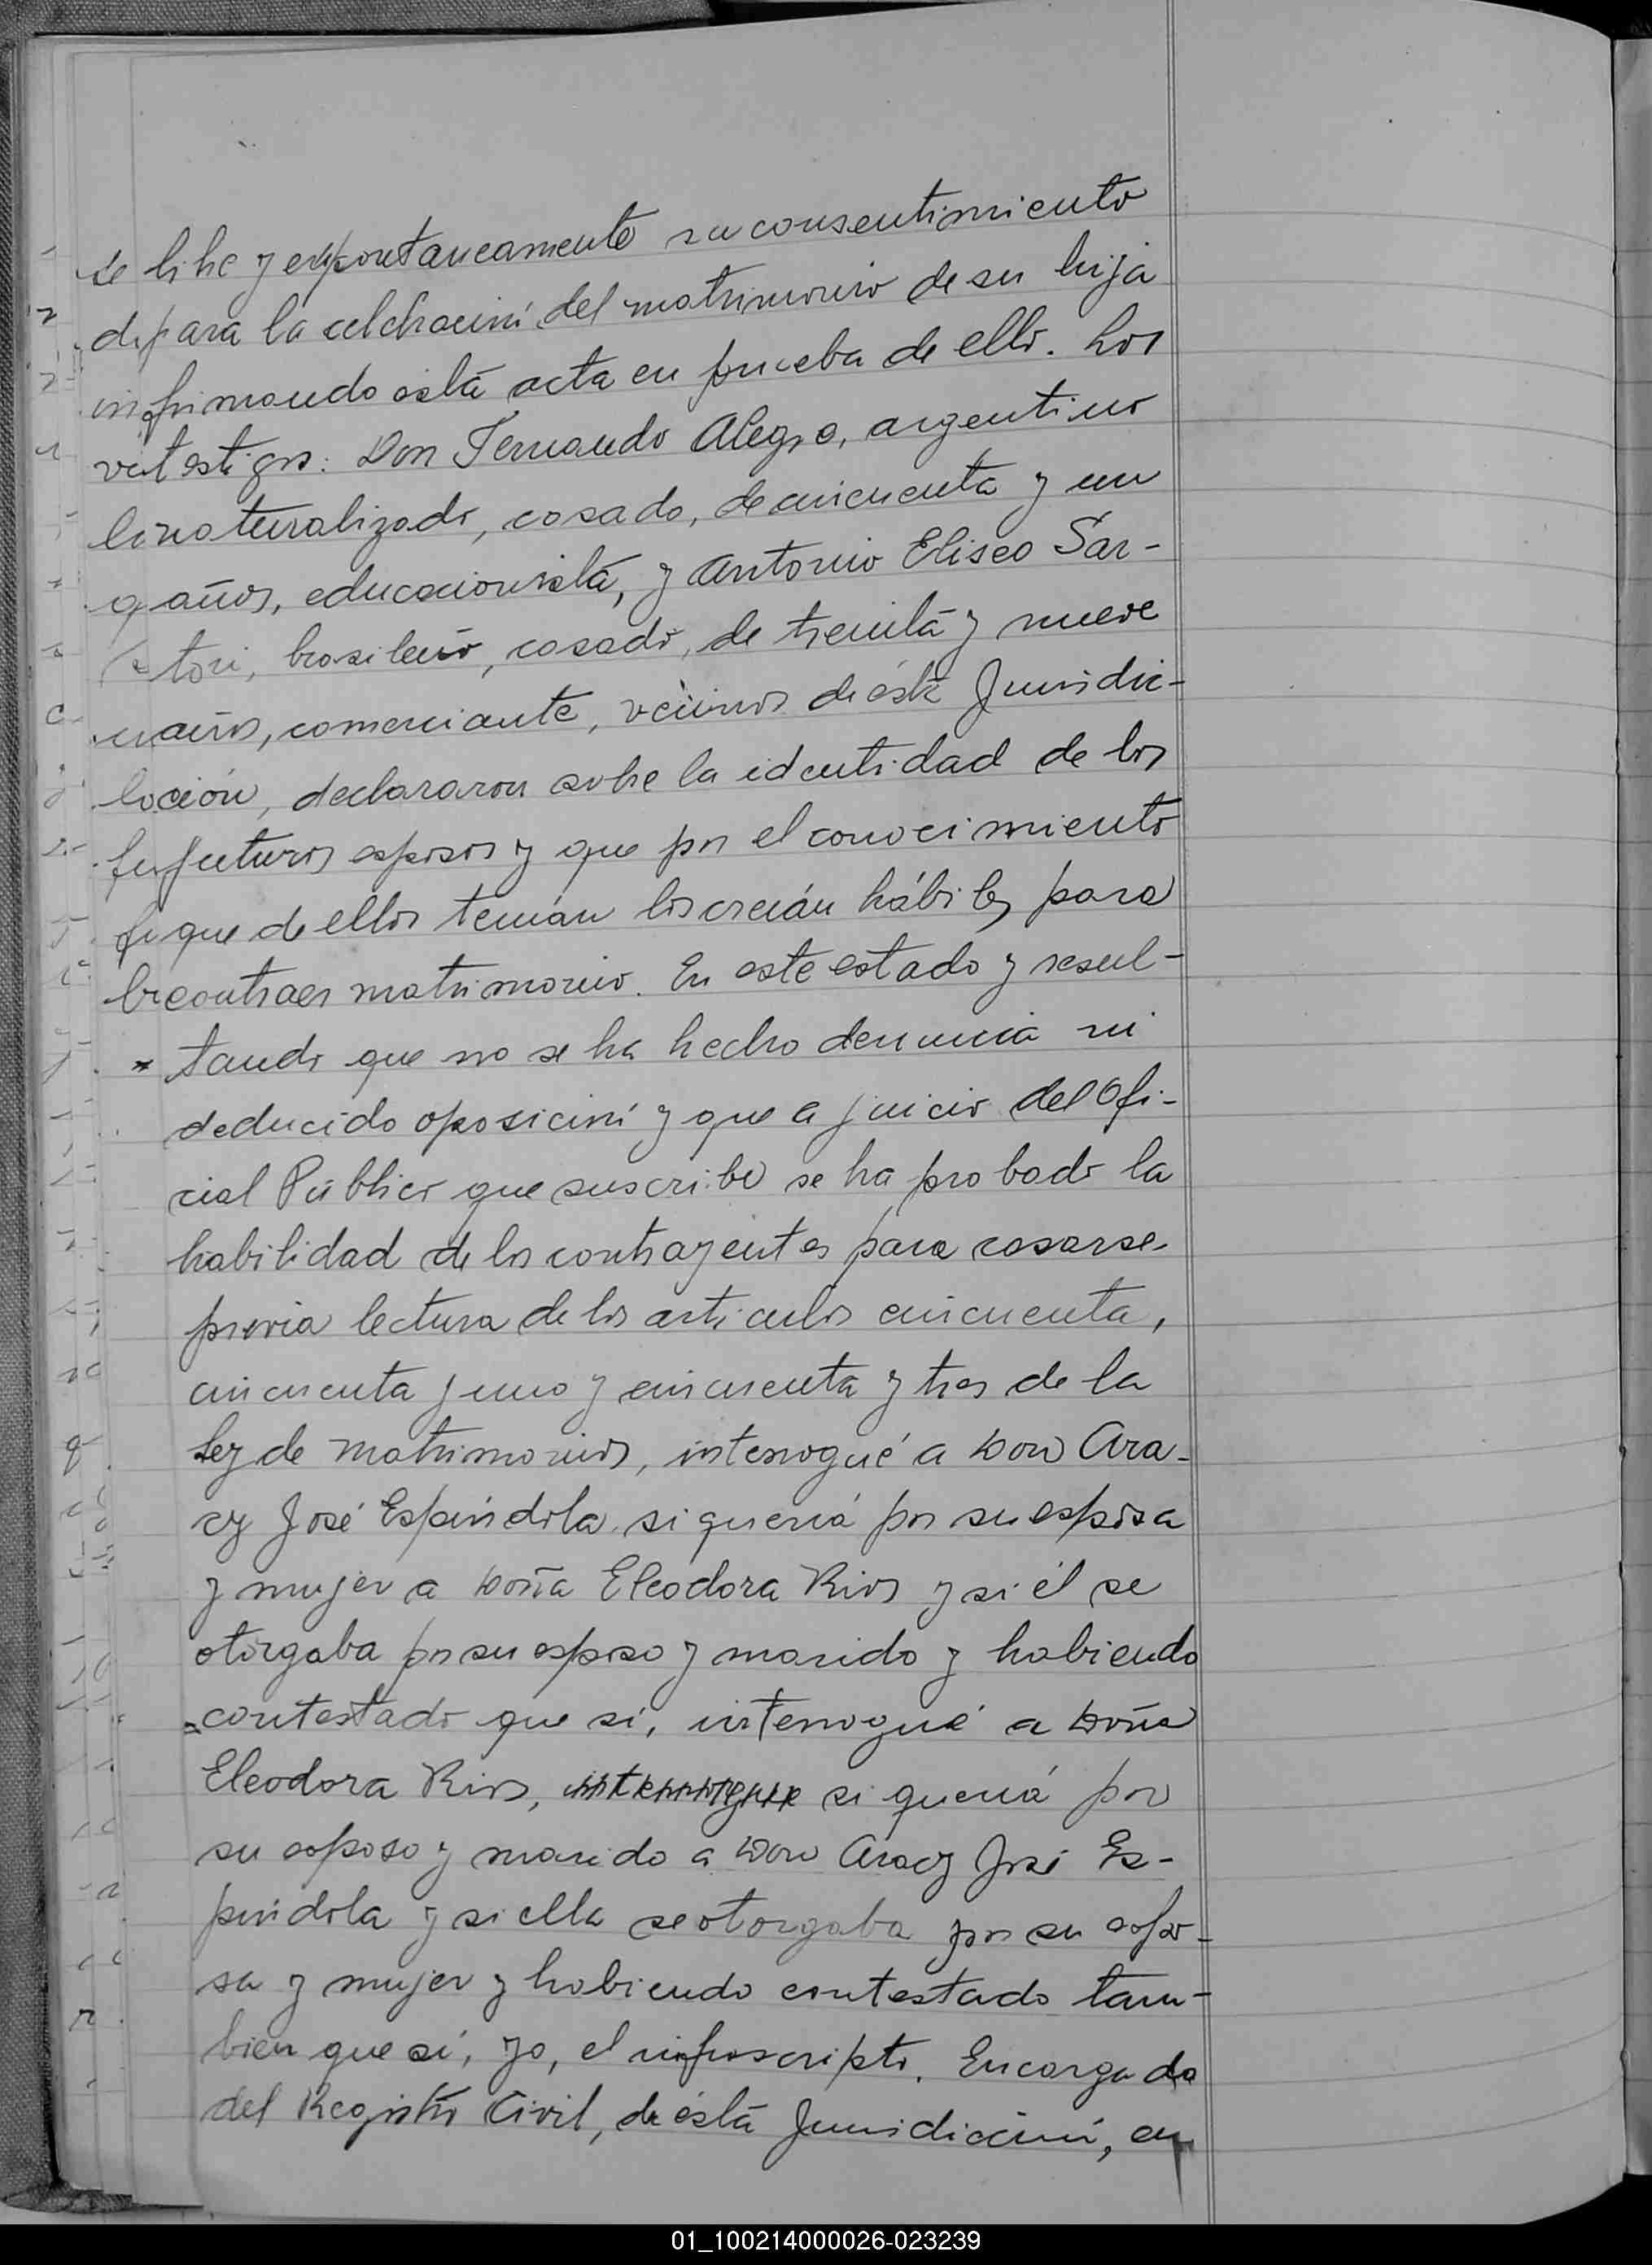 libre y expontaneamente su consentimiento
para la celebración del matrimonio de su hija
firmando ésta acta en prueba de ello. Los
testigos: Don Fernando Alegre, argentino
naturalizado, casado, de cincuenta y un
años, educacionista, y Antonio Eliseo Sar-
tori, brasileño, casado, de treinta y nueve
años, comerciante, vecinos de ésta Jurisdic-
ción, declararon sobre la identidad de los
futuros esposos y que por el conocimiento
que de ellos tenían los creían hábiles para
contraer matrimonio. En este estado y resul-
tando que no se ha hecho denuncia ni
deducido oposición y que a juicio del Ofi-
cial Público que suscribe se ha probado la
habilidad de los contrayentes para casarse
previa lectura de los articulos cincuenta,
cincuenta y uno y cincuenta y tres de la
Ley de Matrimonios, interrogué a Don Ara-
cy José Espíndola si quería por su esposa
y mujer a Doña Eleodora Rios y si él se
otorgaba por su esposo y marido y habiendo
contestado que sí, interrogué a Doña
Eleodora Rios, si quería por
su esposo y marido a Don Aracy José Es-
píndola y si ella se otorgaba por su espo-
sa y mujer y habiendo contestado tam-
bien que sí, yo, el infrascripto, Encargado
del Registro Civil, de ésta Jurisdicción, en
01_100214000026-023239